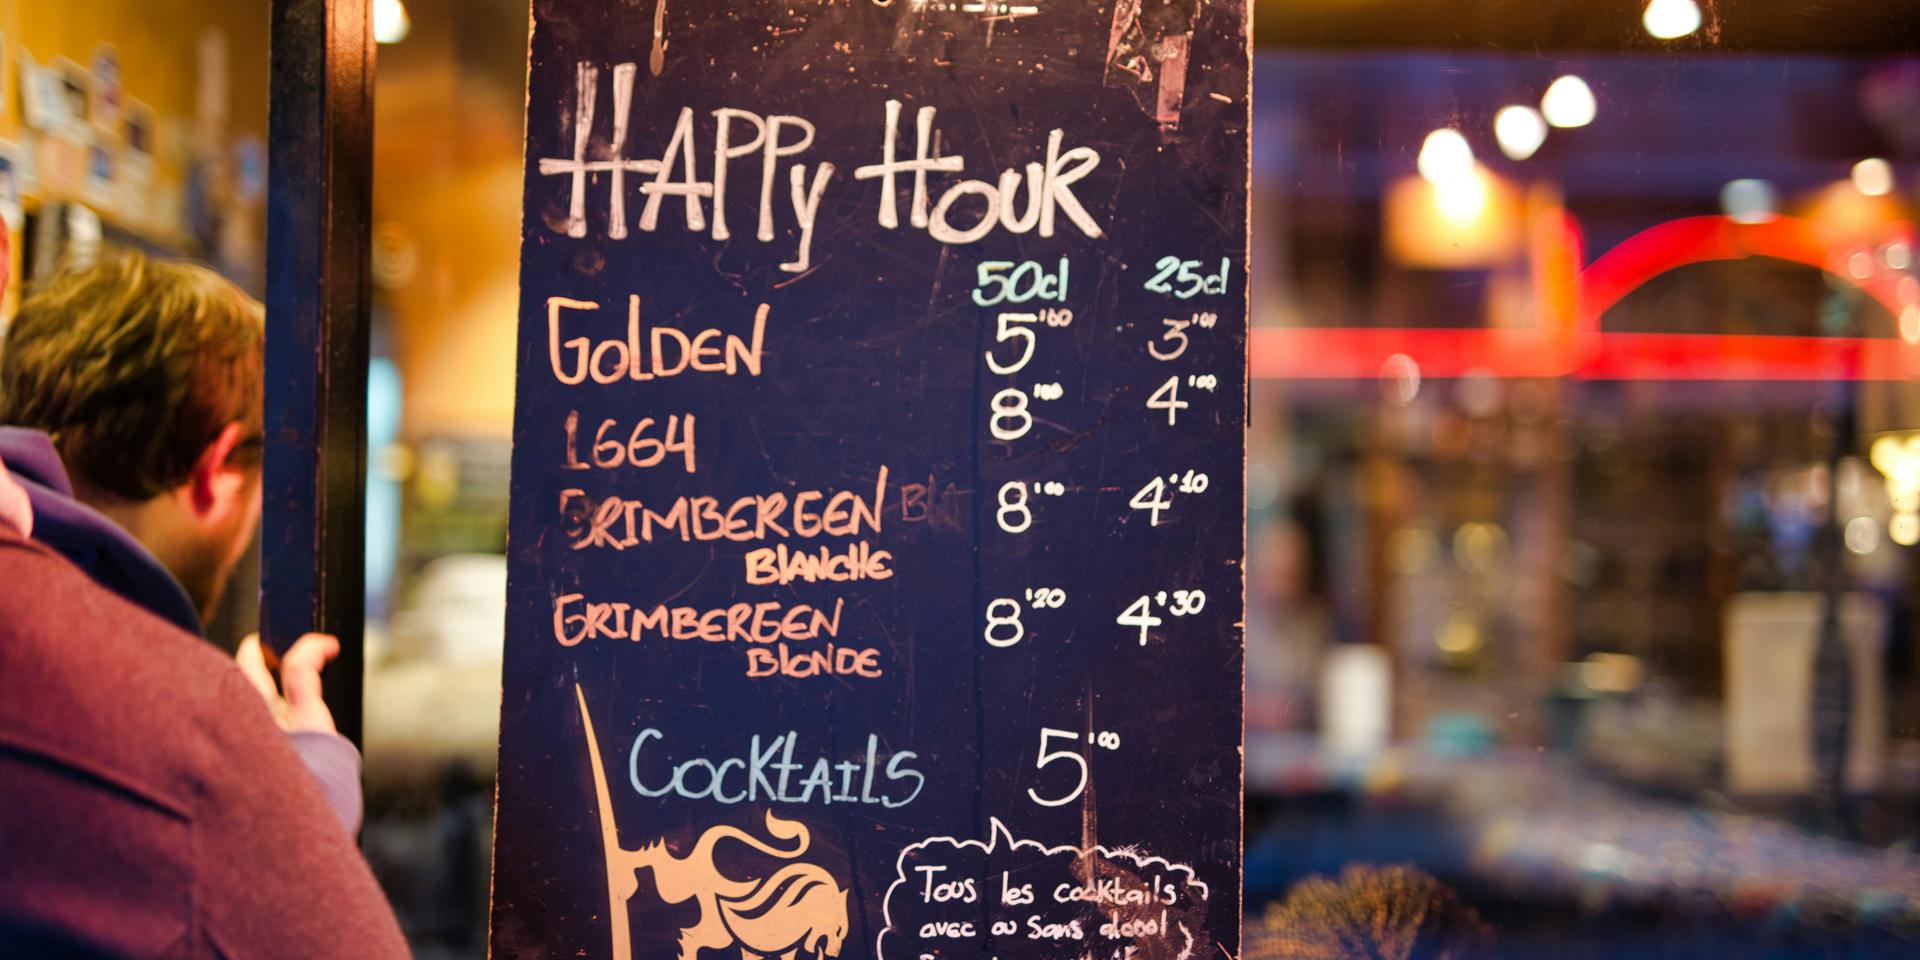 HAPPy HOUR
50cl 25cl
GOLDEN 5'00 3'00
1664 8'00 4'00
GRIMBERGEN 8'00 4'10
BLANCHE
GRIMBERGEN 8'20 4'30
BLONDE
COCKTAILS 5'00
Tous les cocktails
avec ou Sans alcool